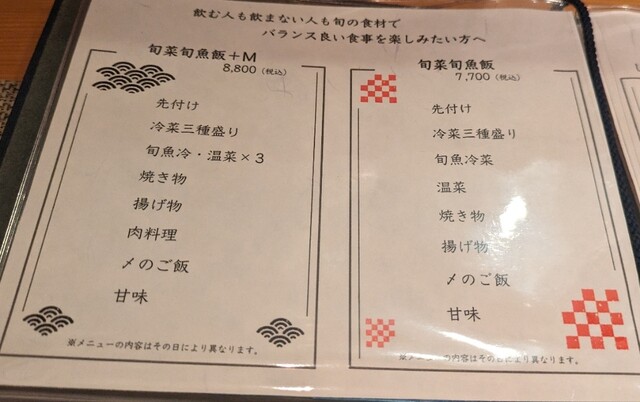 飲む人も飲まない人も旬の食材で
バランス良い食事を楽しみたい方へ
旬菜旬魚飯+M
8,800(税込)
先付け
冷菜三種盛り
旬魚冷・温菜×3
焼き物
揚げ物
肉料理
〆のご飯
甘味
※メニューの内容はその日により異なります。
旬菜旬魚飯
7,700(税込)
先付け
冷菜三種盛り
旬魚冷菜
温菜
焼き物
揚げ物
〆のご飯
甘味
※メニューの内容はその日により異なります。